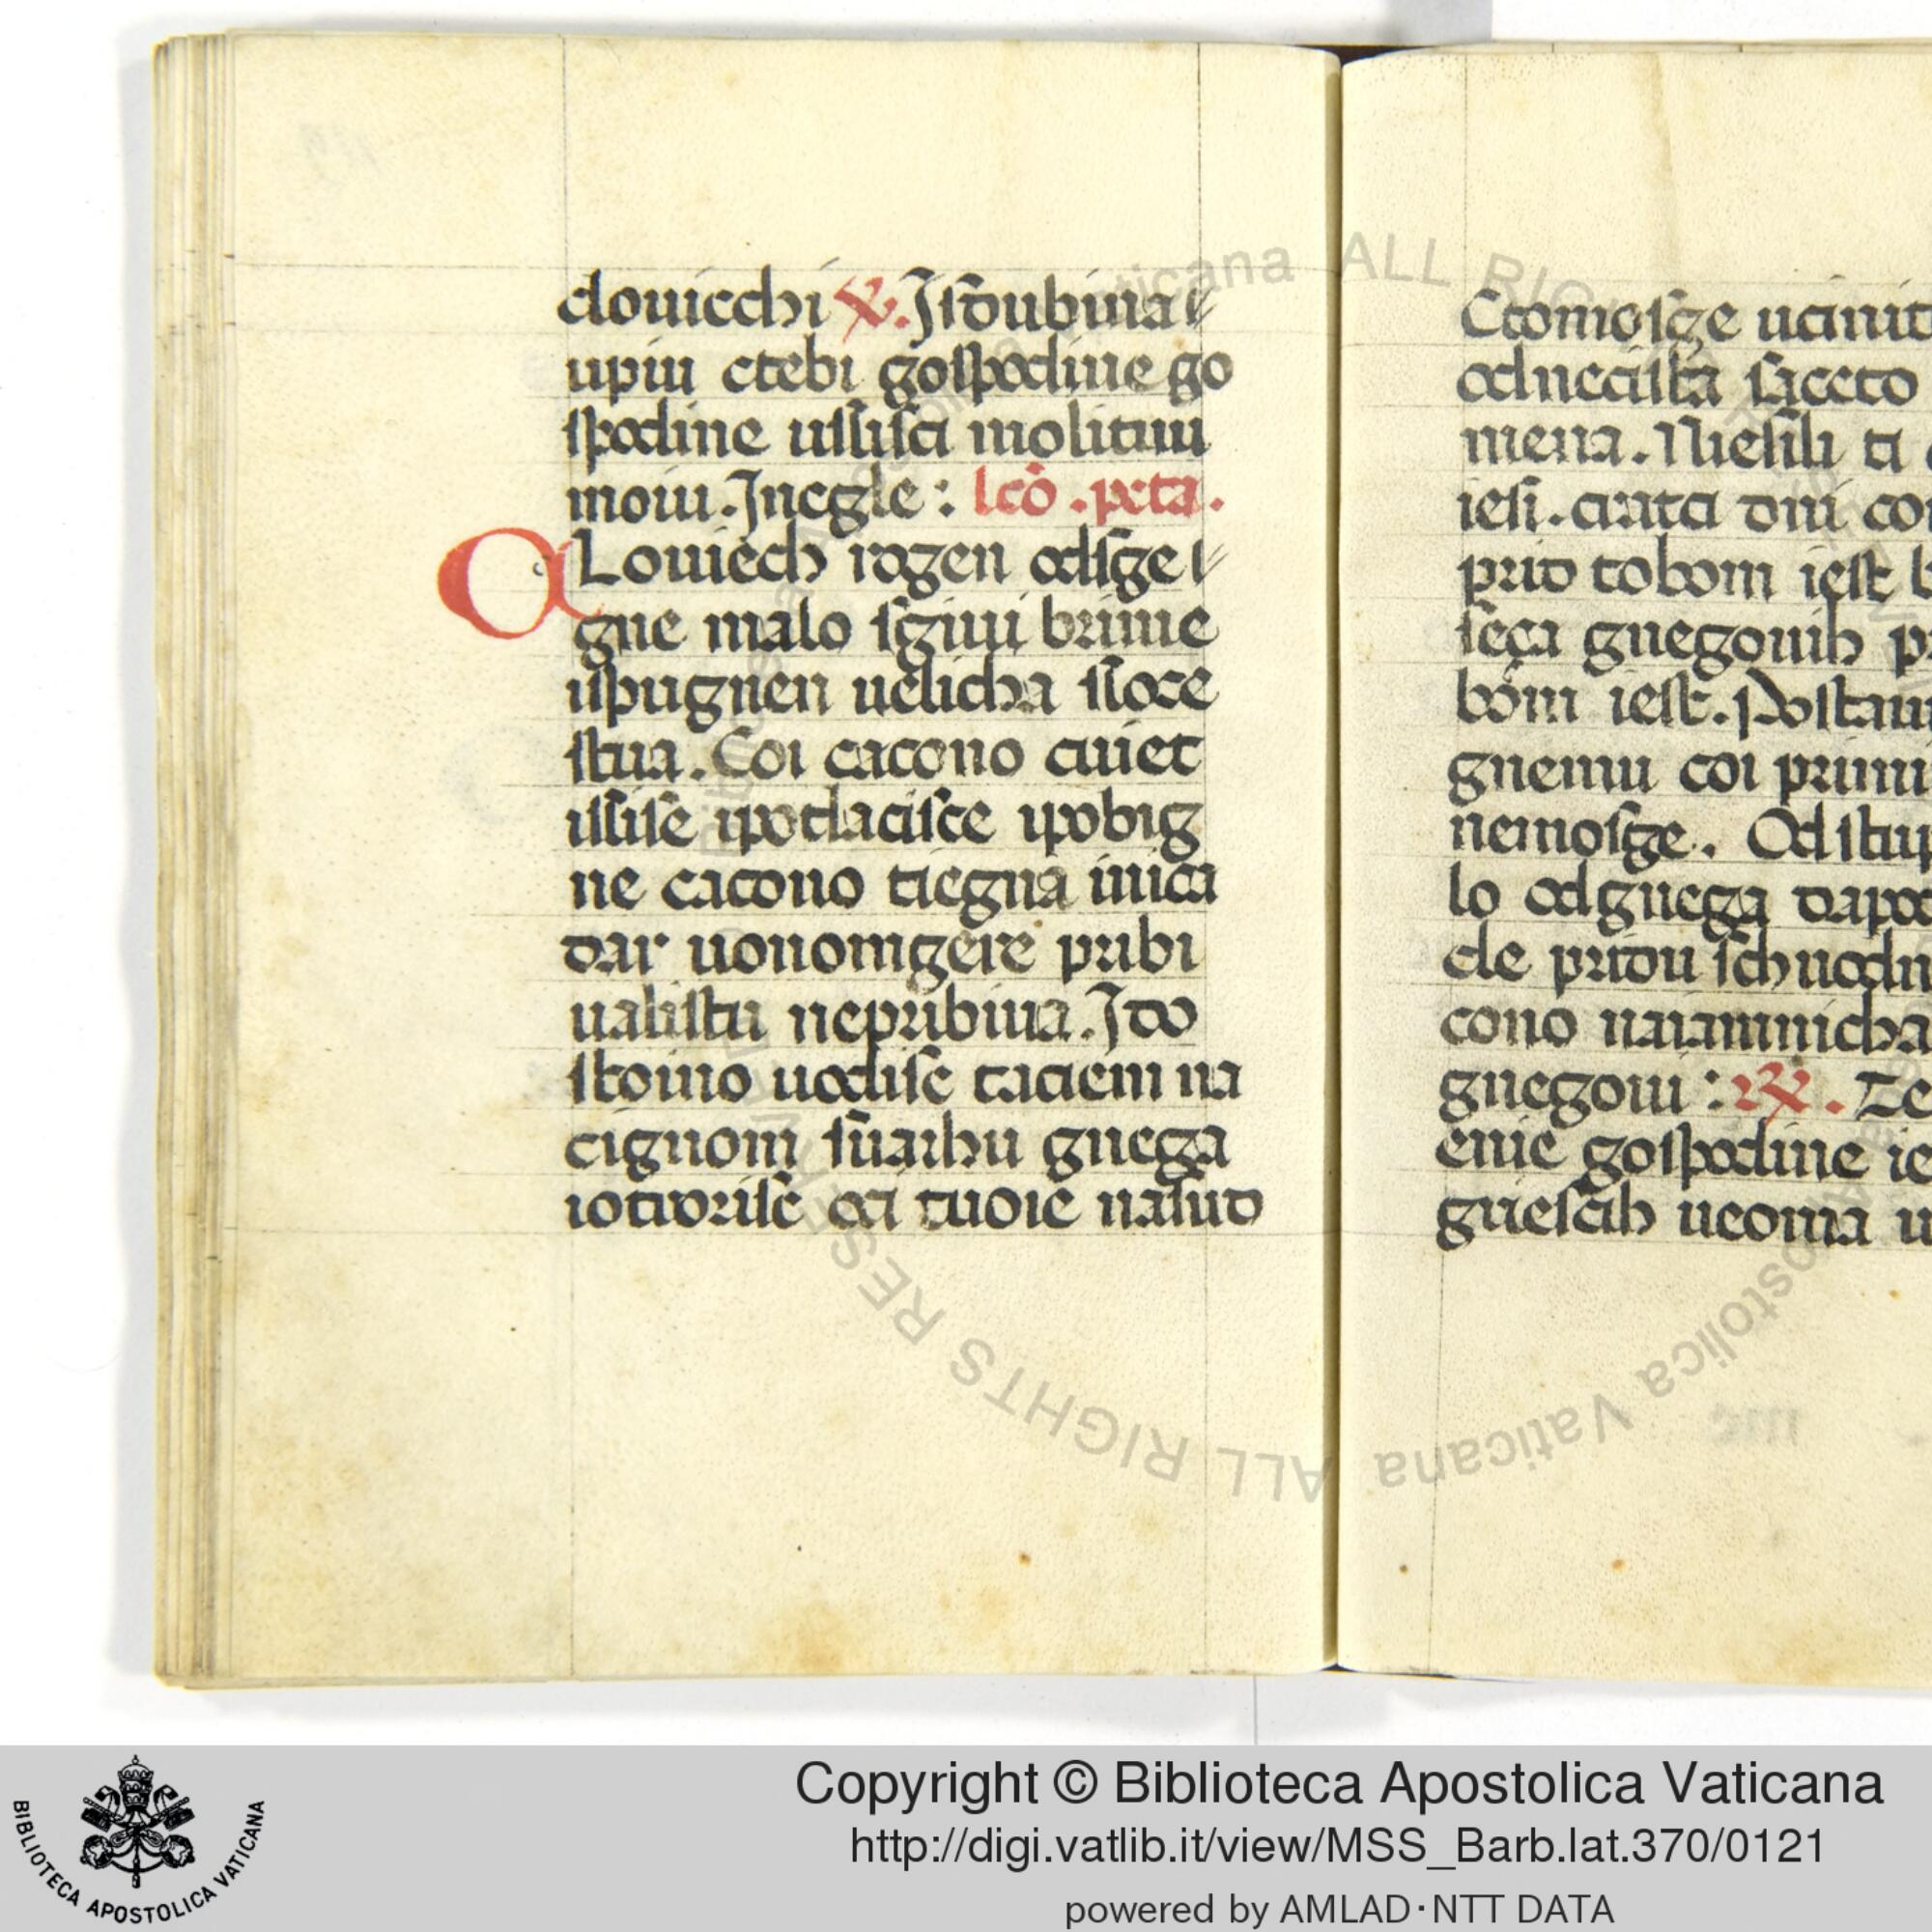 clouicchi ℟. Iſtoubiuaɩ
upiu ctebi goſpodine go
ſpodine uſliſci molituu
moiu. Inegle: lcõ. peta.
CLouiech rogen odſgeɩ
gne malo ſgiui brime
uſpugnen uelicha ſloce
ſtua. Coi cacono ciuiet
iſliſe ipotlaciſce ipobig
ne cacono tiegna inica
dar uonomgere pribi
ualiſtu nepribiua. I do
ſtoino uodiſe taciem na
cignom ſuarhu gnega
iotuoriſe oci tuoie naſud
Ctomoſge ucinit
odneciſta ſiceto
mena. Nieſili ti
ieſi. crata dni co
prid tobom ieſt b
ſeca gnegouih p
bom ieſt. Poſtaui
gnemu coi primi
nemoſge. Od ſtup
lo od gnega dapo
de pridu ſchuodn
cono naiamnicha
gnegoui: ℟. Te
enie goſpodine ie
grieſcih ucoma u
Copyright © Biblioteca Apostolica Vaticana
http://digi.vatlib.it/view/MSS_Barb.lat.370/0121
powered by AMLAD·NTT DATA
BIBLIOTECA APOSTOLICA VATICANA